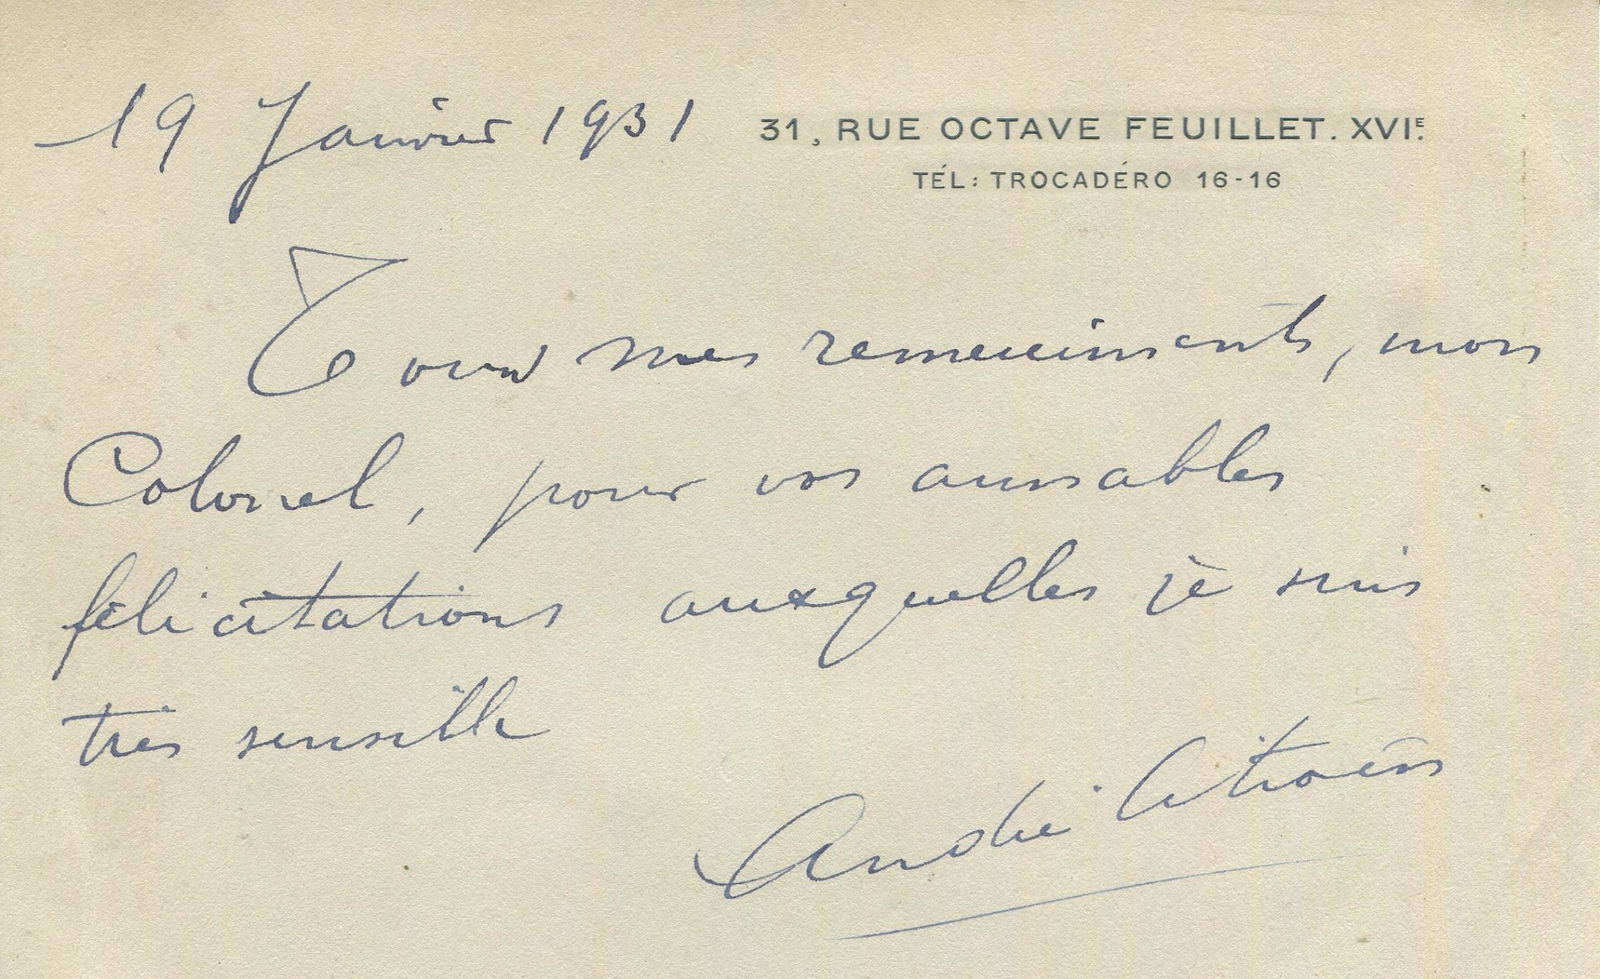 19 Janvier 1931
31, RUE OCTAVE FEUILLET. XVIE.
TÉL: TROCADÉRO 16-16
Tous mes remerciements, mon
Colonel, pour vos aimables
félicitations auxquelles je suis
très sensible
André Citroën